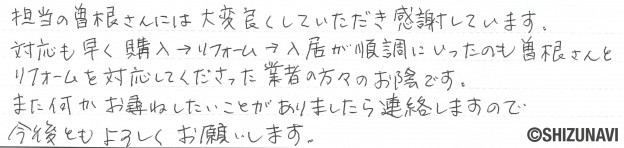 担当の曽根さんには大変良くしていただき感謝しています。
対応も早く購入→リフォーム→入居が順調にいったのも曽根さんと
リフォームを対応してくださった業者の方々のお陰です。
また何かお尋ねしたいことがありましたら連絡しますので
今後ともよろしくお願いします。
©SHIZUNAVI